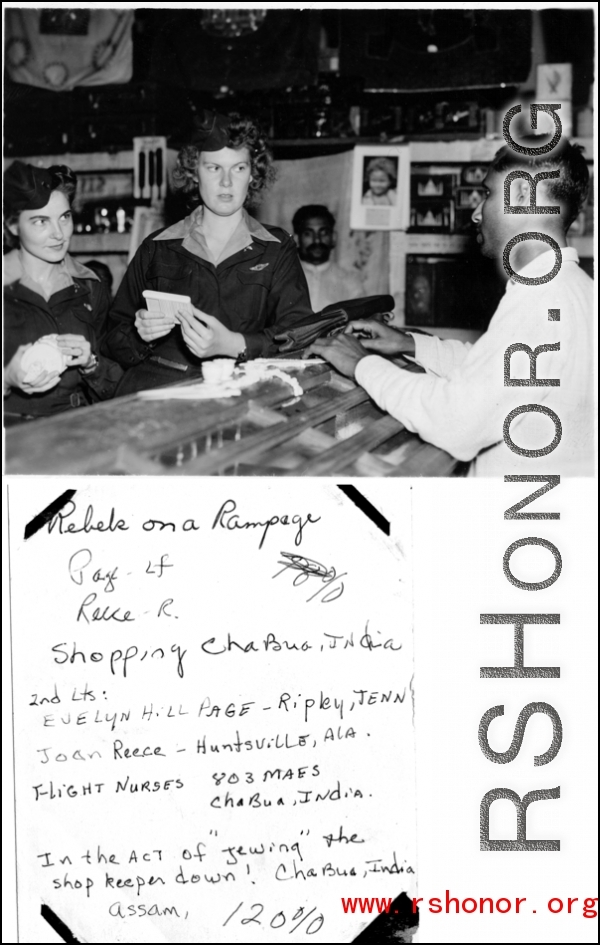 Rebels on a Rampage
Page - Lf
Reece - R.
Shopping ChaBua, INdia
2nd Lts:
EVELYN HILL PAGE - Ripley, TENN
Joan Reece - HuntsVILLE, ALA.
FLIGHT NURSES 803 MAES
ChaBua, INDIA.
In the ACT of "Jewing" the
shop keeper down! ChaBua, India
Assam, 120%
RSHONOR.ORG
www.rshonor.org